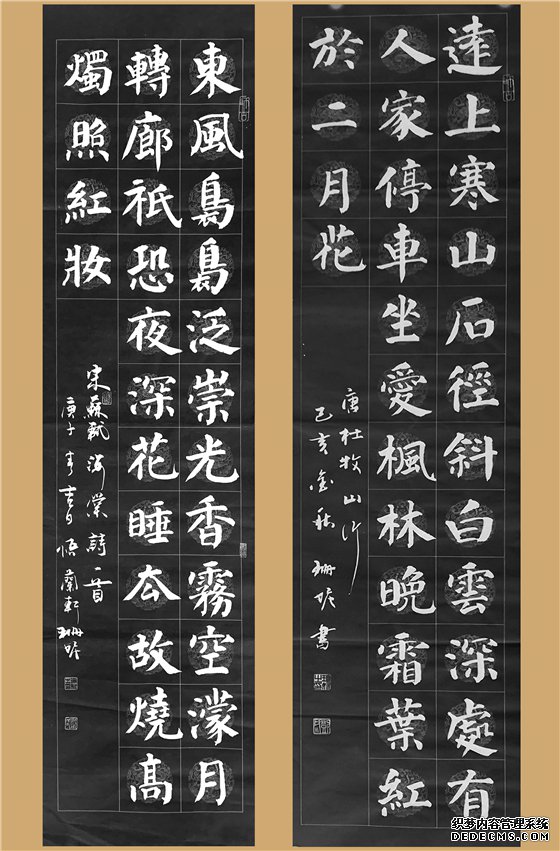 逺上寒山石徑斜白雲深處有
人家停車坐愛楓林晚霜葉紅
於二月花
唐杜牧山行
己亥金秋 珊書
東風裊裊泛崇光香霧空濛月
轉廊祇恐夜深花睡去故燒高
燭照紅妝
宋蘇軾海棠詩一首
庚子吉日悟蘭軒珊
织梦内容管理系统
DEDECMS.COM